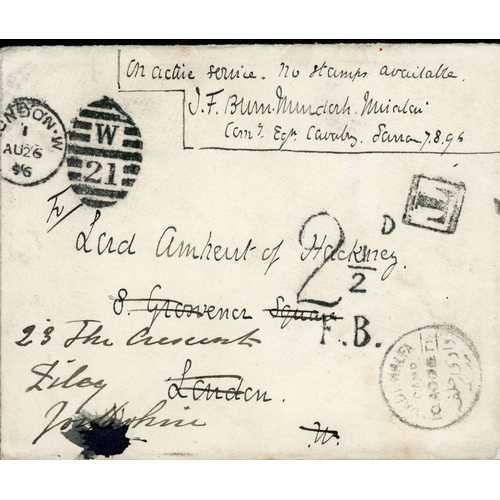 On active service. No stamps available.
J. F. Burn-Murdoch. Miralai
Comg Egn Cavalry. Sarras 7.8.96
LONDON.W
1
AU 26
96
W
21
T
To/
Lord Amherst of Hackney
2 1/2 D
F.B.
8. Grosvenor Square
23 The Crescent
Filey
London.
Yorkshire
W.
WADI HALFA
CAMP
10 AU 96